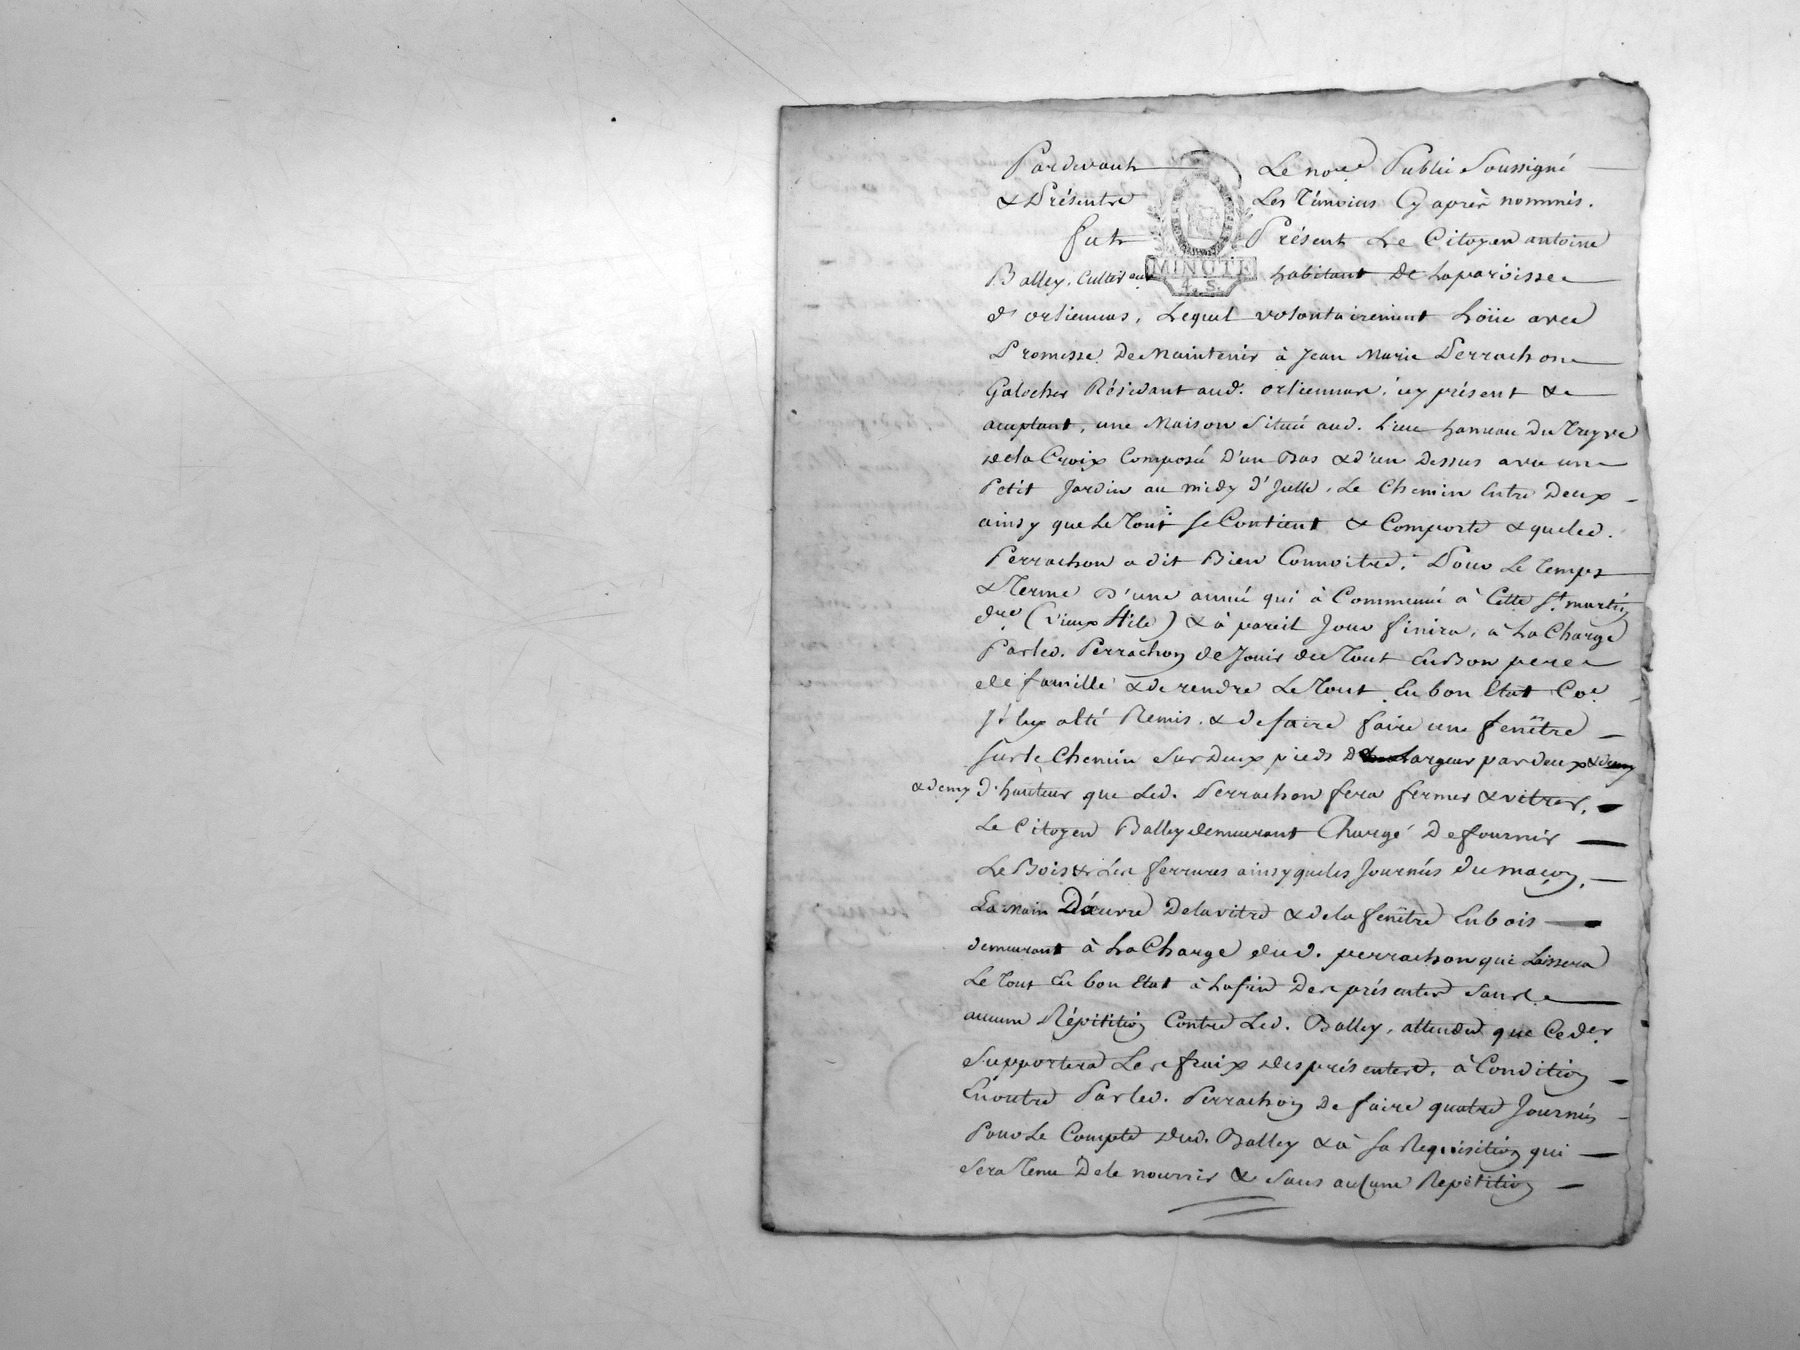 Pardevant Le nore Public Soussigné
& Présentre Les Témoins Cy après nommés.
fut Présent Le Citoyen antoine
MINUTE
4. S.
Balley, Cultivateur habitant De La paroisse
d'orliennas, Lequel volontairement Loüe avec
Promesse De Maintenir à Jean Marie Perrachon
Galocher Résidant aud. orliennas, icy présent &
acceptant, une Maison Située aud. Lieu hameau Du
de la Croix Composé D'un Bas & d'un Dessus avec une
Petit Jardin au midy d'Jcelle, Le Chemin Entre Deux
ainsy que Le Tout se Contient & Comporte & que led.
Perrachon a dit Bien Connoitre. Pour Le Temps
& Terme D'une année qui à Commencé à Cette St. martin
dre (vieux Stile) & à pareil Jour finira, à La Charge
Par led. Perrachon de Jouir du Tout En Bon pere
de famille & de rendre Le Tout En bon Etat Coe.
Jl luy a été Remis, & de faire faire une fenêtre
sur le Chemin Sur Deux pieds De Largeur par deux & demy
& demy d'hauteur que Led. Perrachon fera fermer & vitrer,
Le Citoyen Balley demeurant Chargé De fournir
Le Bois & Les ferrures ainsy que les Journées du maçon,
La Main D'œuvre De la vitre & de la fenêtre En bois
demeurant à La Charge dud. perrachon qui Laissera
Le Tout En bon Etat à La fin Des présentes Sans
aucune Répétition Contre Led. Balley, attendu que Ceder.
Supportera Les fraix des présentes, à Condition
En outre Par led. Perrachon De faire quatre Journées
Pour Le Compte dud. Balley & à Sa Requisition qui
Sera Tenu De le nourrir & Sans aucune Repétition